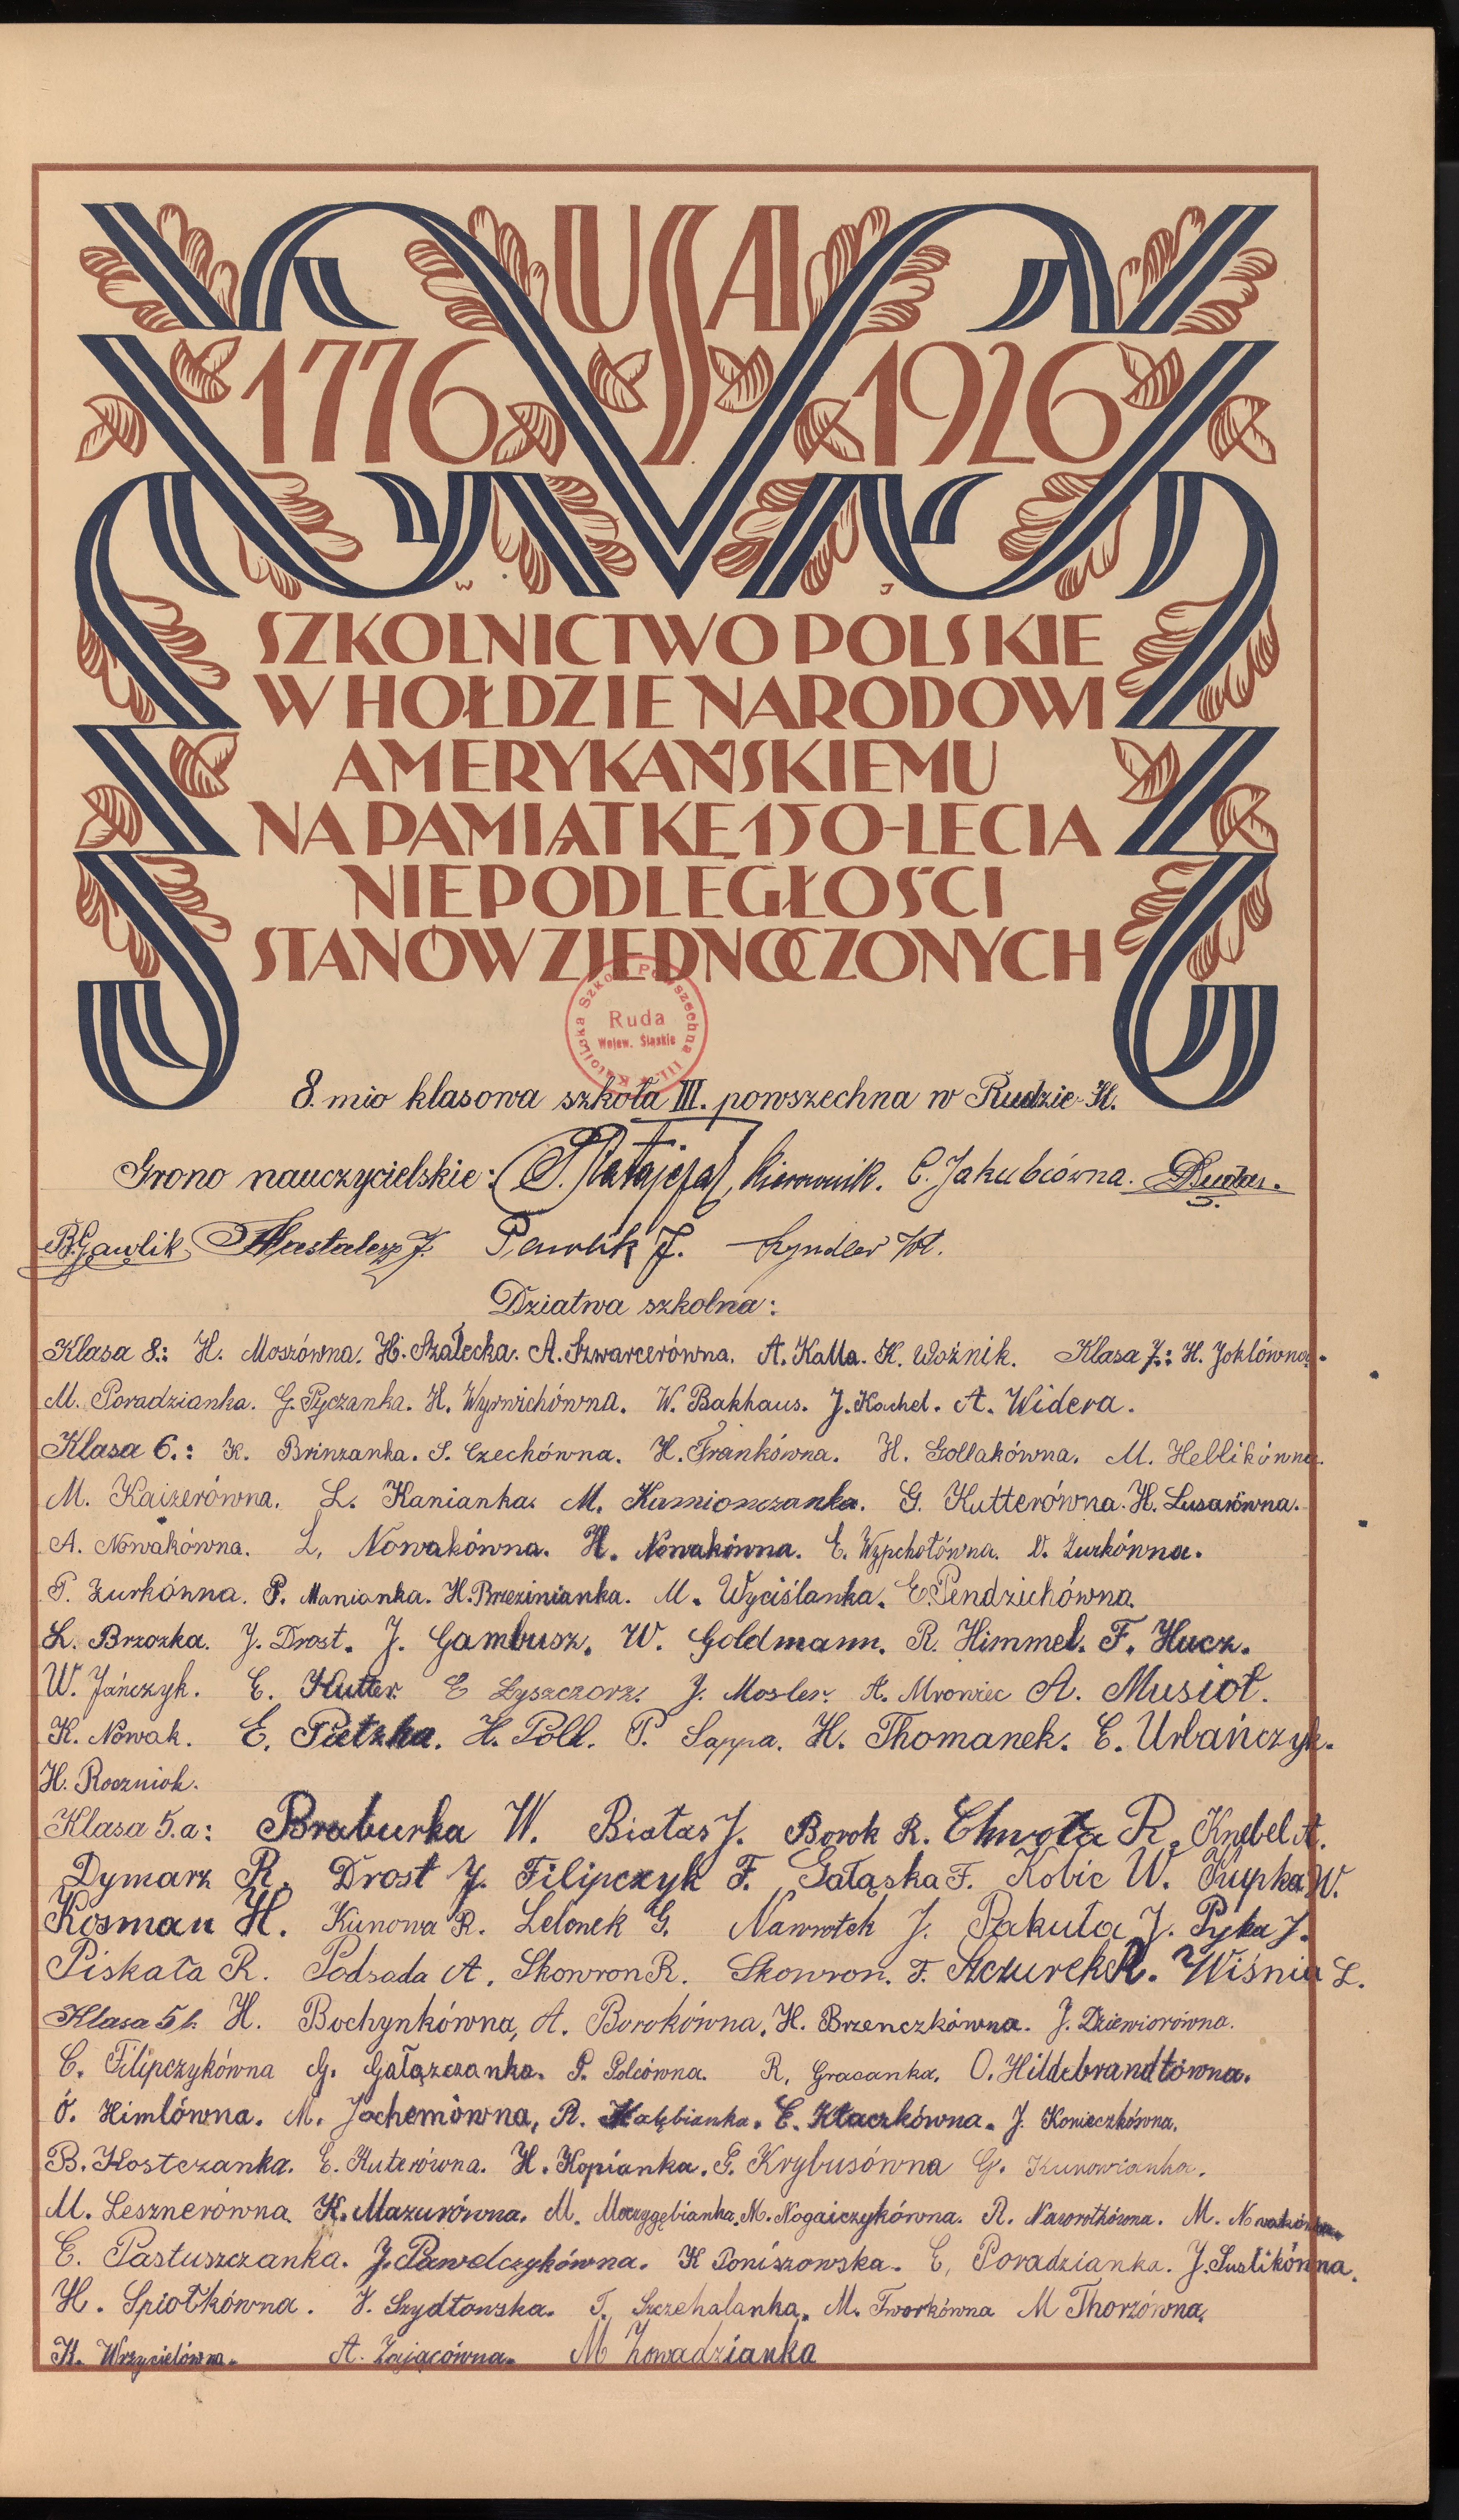 USA
1776 1926
W J
SZKOLNICTWO POLSKIE
W HOŁDZIE NARODOWI
AMERYKAŃSKIEMU
NA PAMIĄTKĘ 150-LECIA
NIEPODLEGŁOŚCI
STANÓW ZJEDNOCZONYCH
Katolicka Szkoła Powszechna III.
Ruda
Wojew. Śląskie
8. mio klasowa szkoła III. powszechna w Rudzie Śl.
Grono nauczycielskie: kierownik. C. Jakubiówna.
B. Gawlik J. Pawlik J.
Dziatwa szkolna:
Klasa 8.: H. Moszówna. H. Szałecka. A. Szwarcerówna. A. Kalla. K. Woźnik. Klasa 7.: H. Joklówna.
M. Poradzianka. G. Pyczanka. H. Wyrwichówna. W. Bakhaus. J. Kachel. A. Widera.
Klasa 6.: K. Brinzanka. S. Czechówna. H. Frankówna. H. Gollakówna. M. Heblikówna.
M. Kaizerówna. L. Kanianka. M. Kamionczanka. G. Kutterówna. H. Lusarówna.
A. Nowakówna. L. Nowakówna. H. Nowakówna. E. Wypchołówna. D. Żurkówna.
T. Żurkówna. P. Manianka. H. Brzezinianka. M. Wyciślanka. E. Pendzichówna.
L. Brzozka. J. Drost. J. Gambusz. W. Goldmann. R. Himmel. F. Hucz.
W. Jańczyk. E. Kutter. E Łyszczorz. J. Mosler. A. Mrowiec A. Musioł.
K. Nowak. E. Pietzka. H. Poll. P. Sappa. H. Thomanek. E. Urbańczyk.
H. Roczniok.
Klasa 5.a: Braburka W. Białas J. Borok R. Chwoła R. Knebel A.
Dymarz R. Drost J. Filipczyk F. Gałąska F. Kobic W. Kupka W.
Kosman H. Kunowa R. Lelonek G. Nawrotek J. Pakuła J. Pyka J.
Piskała R. Podsada A. Skowron R. Skowron. F. Szczurek R. Wiśnia L.
Klasa 5 b. H. Bochynkówna, A. Borokówna. H. Brzenczkówna. J. Dziewiorówna.
C. Filipczykówna G. Gałązczanka. P. Golcówna. R. Gracanka. O. Hildebrandtówna.
O. Himlówna. M. Jochemówna, R. Kalębianka. E. Kłaczkówna. J. Konieczkówna.
B. Kostczanka. E. Kuterówna. H. Kopianka. G. Krybusówna G. Kunowianka.
M. Lesznerówna K. Mazurówna. M. Moczygębianka. M. Nogaiczykówna. R. Nawrotkówna. M. Nowakówna.
C. Pastuszczanka. J. Pawelczykówna. K Poniszowska. E. Poradzianka. J. Suslikówna.
H. Spiołkówna. H. Szydłowska. T. Szczehalanka. M. Tworkówna M Thorzówna.
K. Wrzycielówna. A. Zającówna. M Zowadzianka